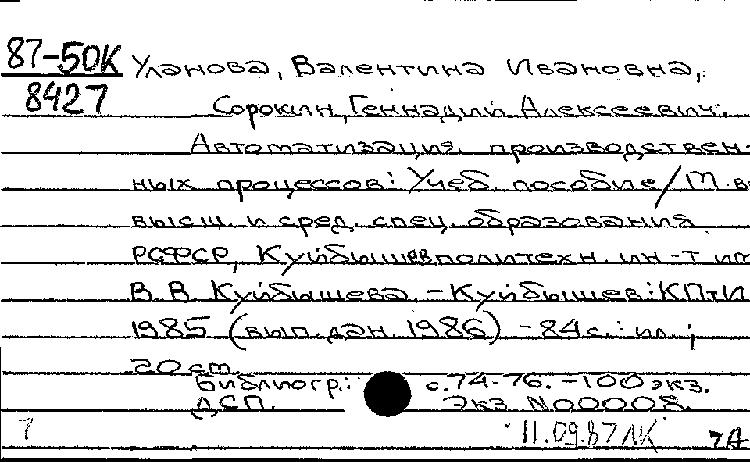 87-50К
8427
Уланова, Валентина Ивановна,
Сорокин, Геннадий Алексеевич.
Автоматизация производствен-
ных процессов: Учеб. пособие / М-в
высш. и сред. спец. образования
РСФСР, Куйбышев политехн. ин-т им
В. В. Куйбышева. - Куйбышев: КПтИ
1985 (вып. дан. 1986) - 84 с.: ил.;
20 см.
Библиогр.: с. 74-76. - 100 экз.
ДСП. Экз. N00008.
7 11.09.87 ЛК